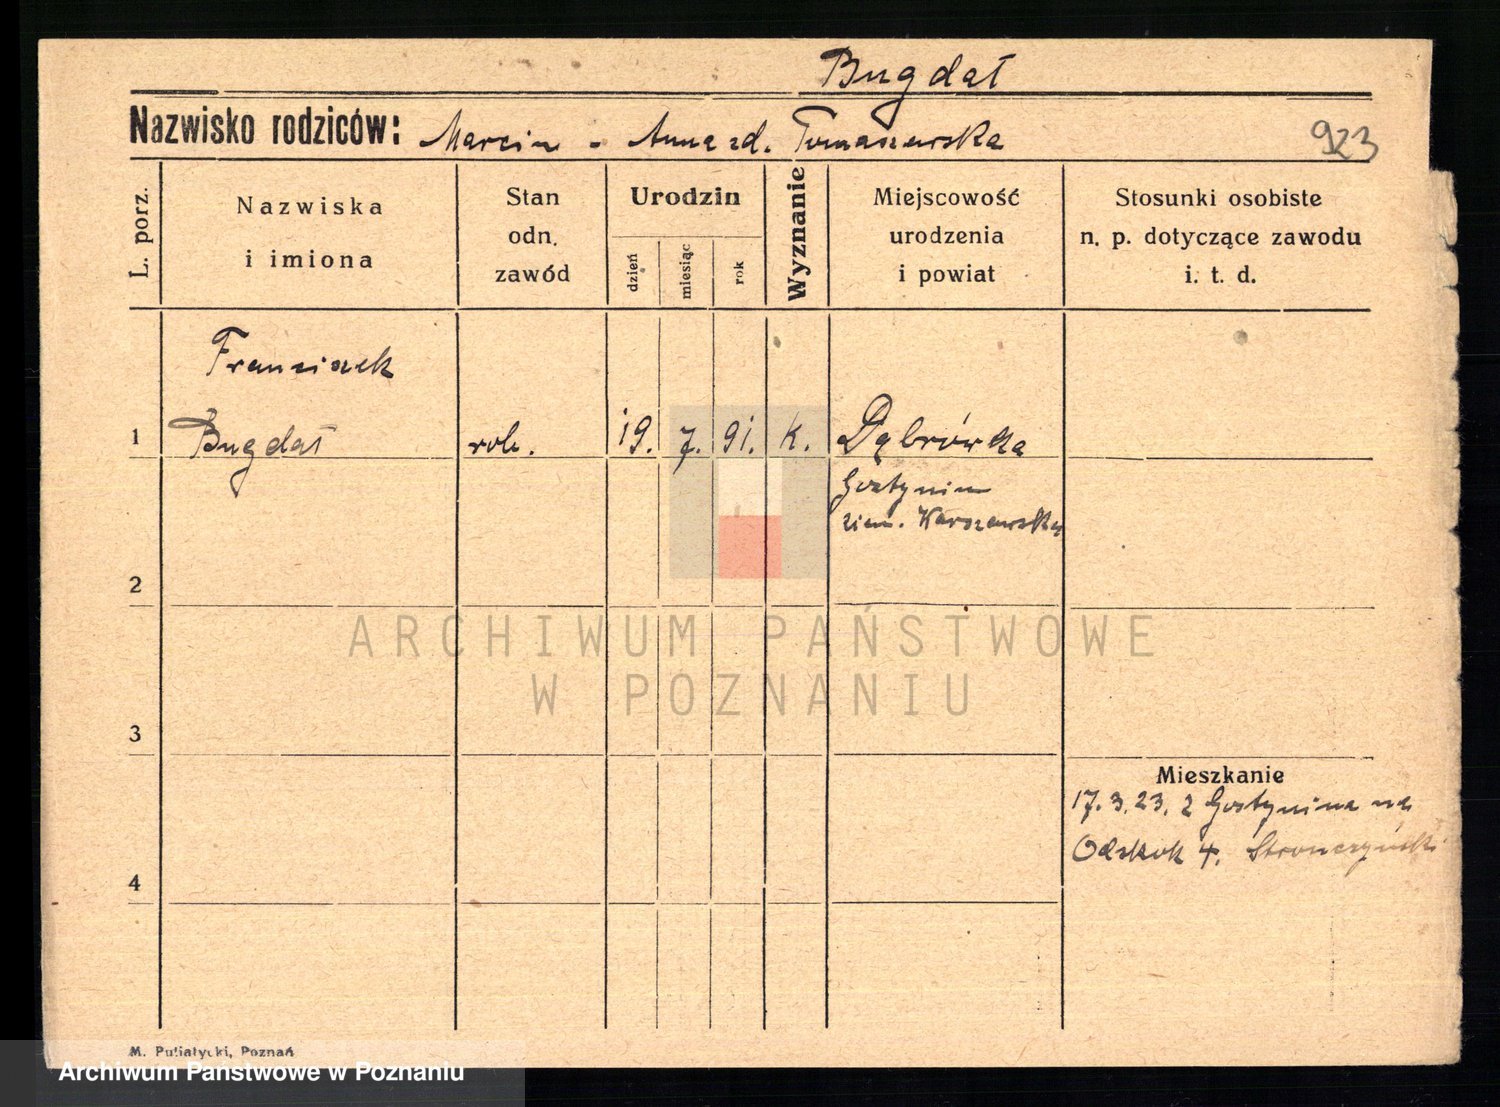 Bugdał
Nazwisko rodziców: Marcin - Anna zd. Tomaszewska
923
L. porz.
Nazwiska
i imiona
Stan
odn.
zawód
Urodzin
dzień
miesiąc
rok
Wyznanie
Miejscowość
urodzenia
i powiat
Stosunki osobiste
n. p. dotyczące zawodu
i. t. d.
Franciszek
1 Bugdał rob. 19. 7. 91. k. Dąbrówka
Gostynin
ziem. Warszawska
2
ARCHIWUM PAŃSTWOWE
W POZNANIU
3
Mieszkanie
17.3.23. z Gostynina na
Odskok 4. Stronczyński
4
M. Putiatycki, Poznań
Archiwum Państwowe w Poznaniu